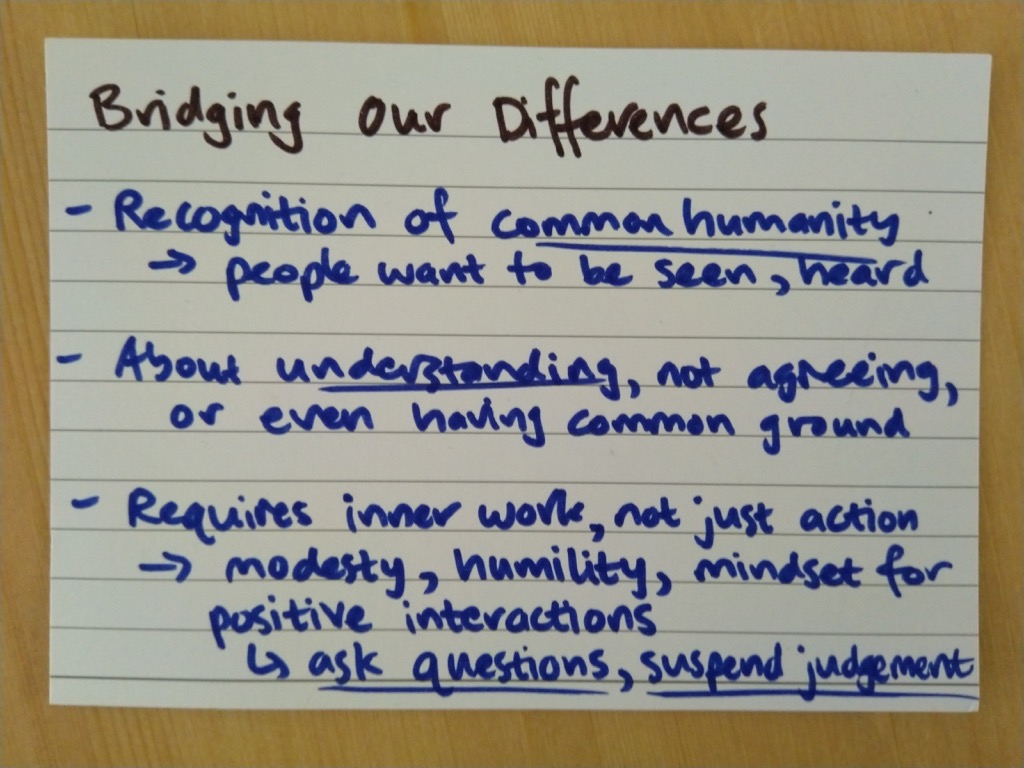 Bridging Our Differences
- Recognition of common humanity
→ people want to be seen, heard
- About understanding, not agreeing,
or even having common ground
- Requires inner work, not just action
→ modesty, humility, mindset for
positive interactions
↳ ask questions, suspend judgement